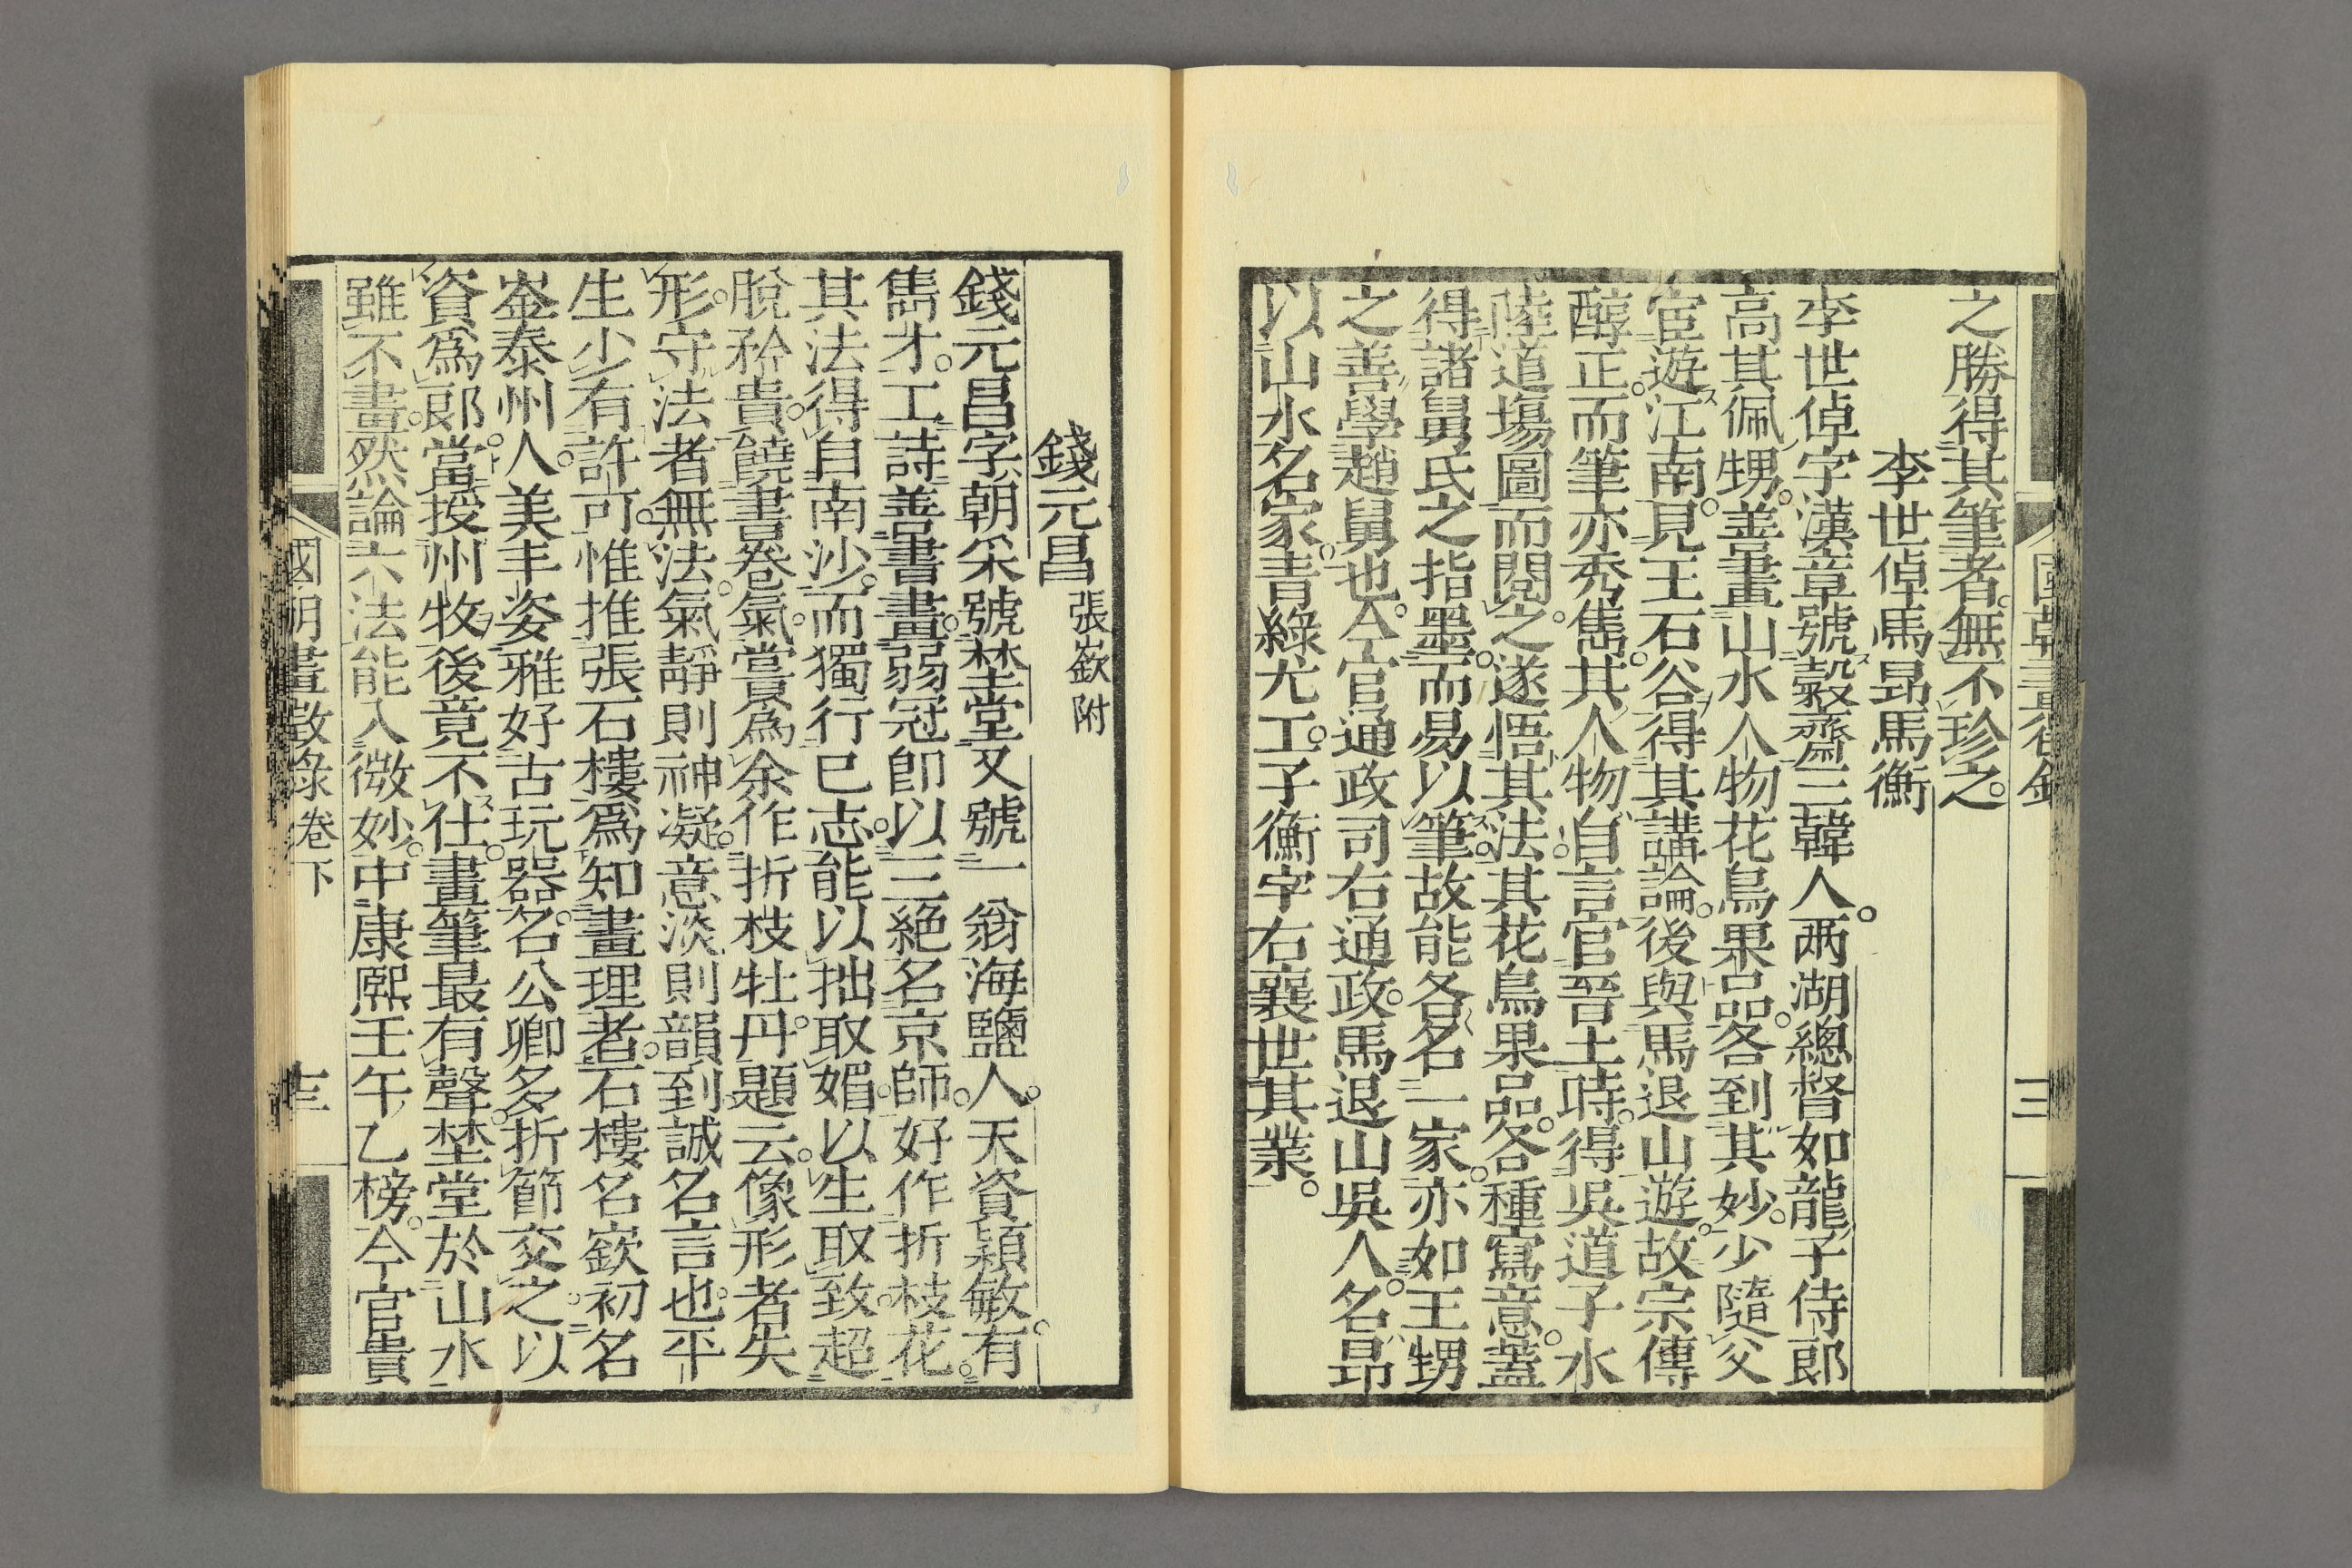 之勝得其筆者無不珍之。
李世倬馬昴馬衡
李世倬字漢章號穀齋三韓人。两湖總督如龍子侍郎
高其佩甥。善畫山水人物花鳥果品。各到其妙。少隨父
宦遊江南。見王石谷得其講論。後與馬退山遊。故宗傳
醇正。而筆亦秀雋。其人物。自言官晉土時。得吳道子水
陸道塲圖而閱之。遂悟其法。其花鳥果品。各種寫意。蓋
得諸舅氏之指墨。而易以筆。故能各名一家。亦如王甥
之善學趙舅也。今官通政司右通政。馬退山吳人。名昴
以山水名家。青綠尤工。子衡字右襄世其業。
錢元昌 張嶔附
錢元昌字朝采號埜堂又號一翁海鹽人。天資穎敏。有
雋才。工詩善書畫。弱冠卽以三絕名京師。好作折枝花。
其法得自南沙。而獨行己志。能以拙取媚。以生取致。超
脫矜貴。饒書卷氣。嘗爲余作折枝牡丹。題云。像形者失
形。守法者無法。氣靜則神凝。意淡則韻到誠名言也。平
生少有許可。惟推張石樓爲知畫理者。石樓名嶔初名
崟泰州人。美丰姿雅好古玩器。名公卿多折節交之。以
貲爲郎。當授州牧後竟不仕。畫筆最有聲。埜堂於山水
雖不畫。然論六法能入微妙。中康熙壬午乙榜。今官貴
國朝畫徵錄 卷下 十三